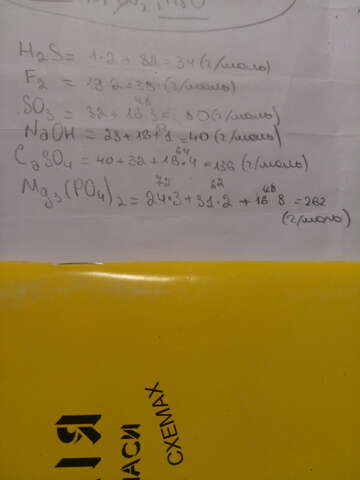 H₂S = 1·2 + 32 = 34 (г/моль)
F₂ = 19·2 = 38 (г/моль)
48
SO₃ = 32 + 16·3 = 80 (г/моль)
NaOH = 23 + 16 + 1 = 40 (г/моль)
64
CaSO₄ = 40 + 32 + 16·4 = 136 (г/моль)
72 62 48
Mg₃(PO₄)₂ = 24·3 + 31·2 + 16 8 = 262
(г/моль)
ИЯ
МАСИ
СХЕМАХ